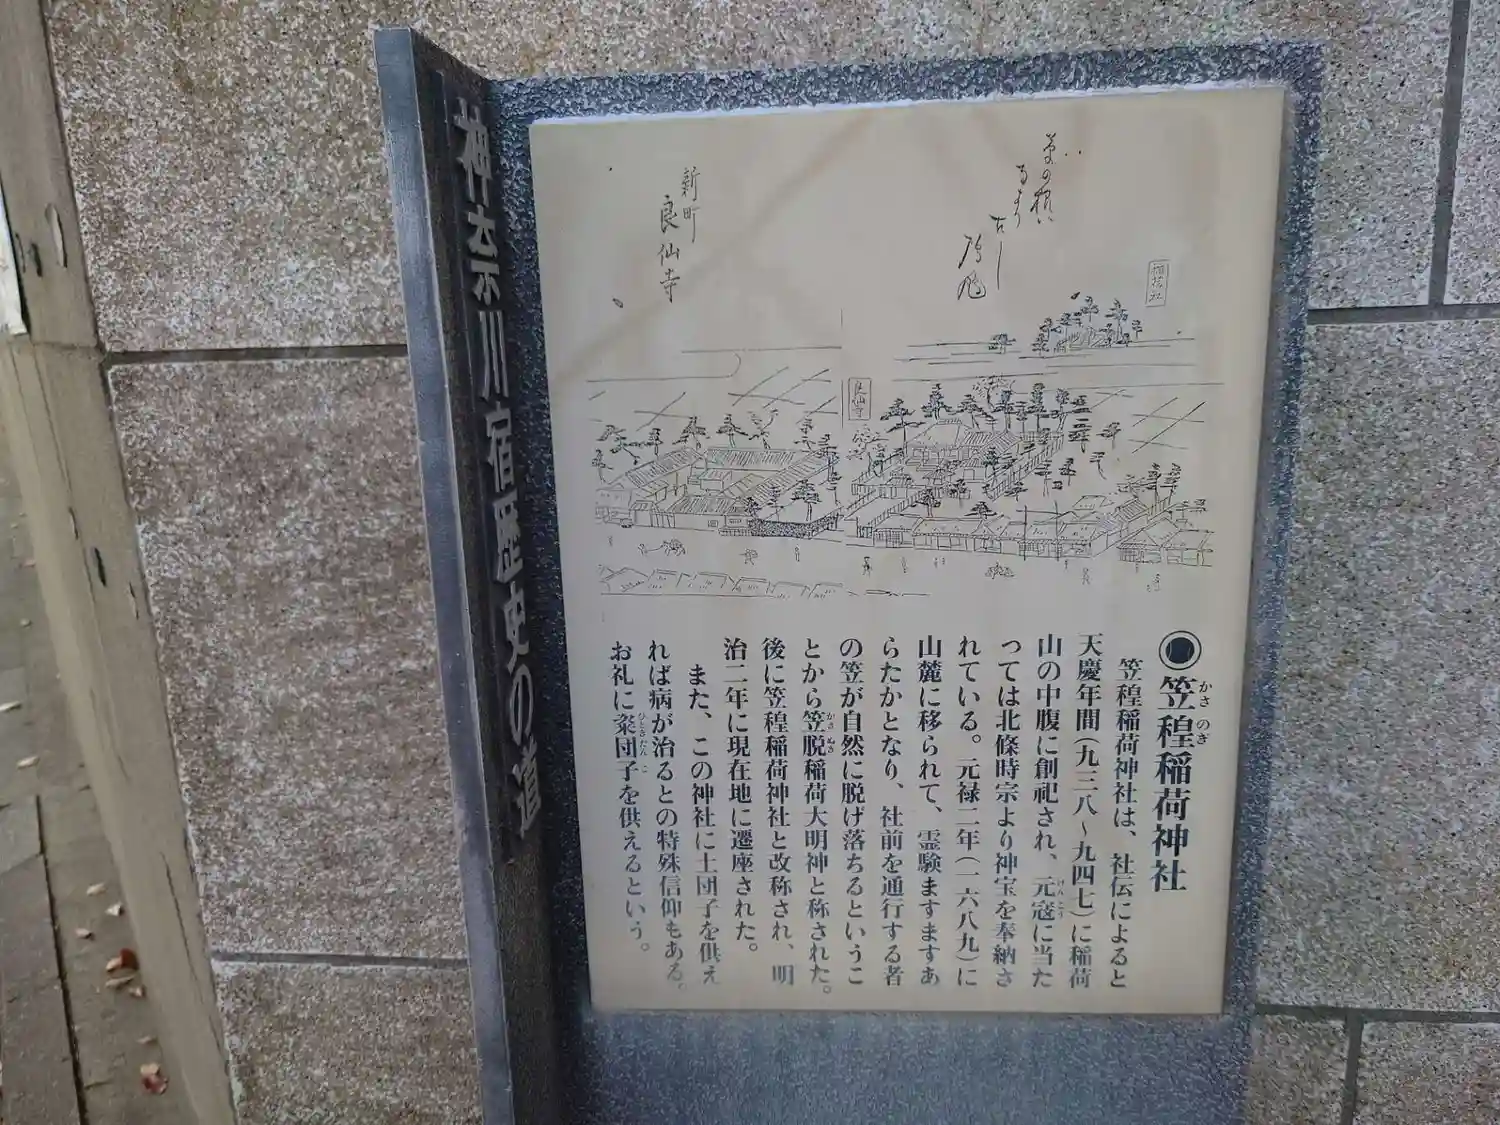 神奈川宿歴史の道
新町
良仙寺
良仙寺
稲荷社
◉笠䅣稲荷神社
かさのぎ
笠䅣稲荷神社は、社伝によると
天慶年間(九三八〜九四七)に稲荷
山の中腹に創祀され、元寇に当た
げんこう
っては北條時宗より神宝を奉納さ
れている。元禄二年(一六八九)に
山麓に移られて、霊験ますますあ
らたかとなり、社前を通行する者
の笠が自然に脱げ落ちるというこ
とから笠脱稲荷大明神と称された。
かさぬき
後に笠䅣稲荷神社と改称され、明
治二年に現在地に遷座された。
また、この神社に土団子を供え
れば病が治るとの特殊信仰もある。
お礼に粢団子を供えるという。
ひとぎだんご